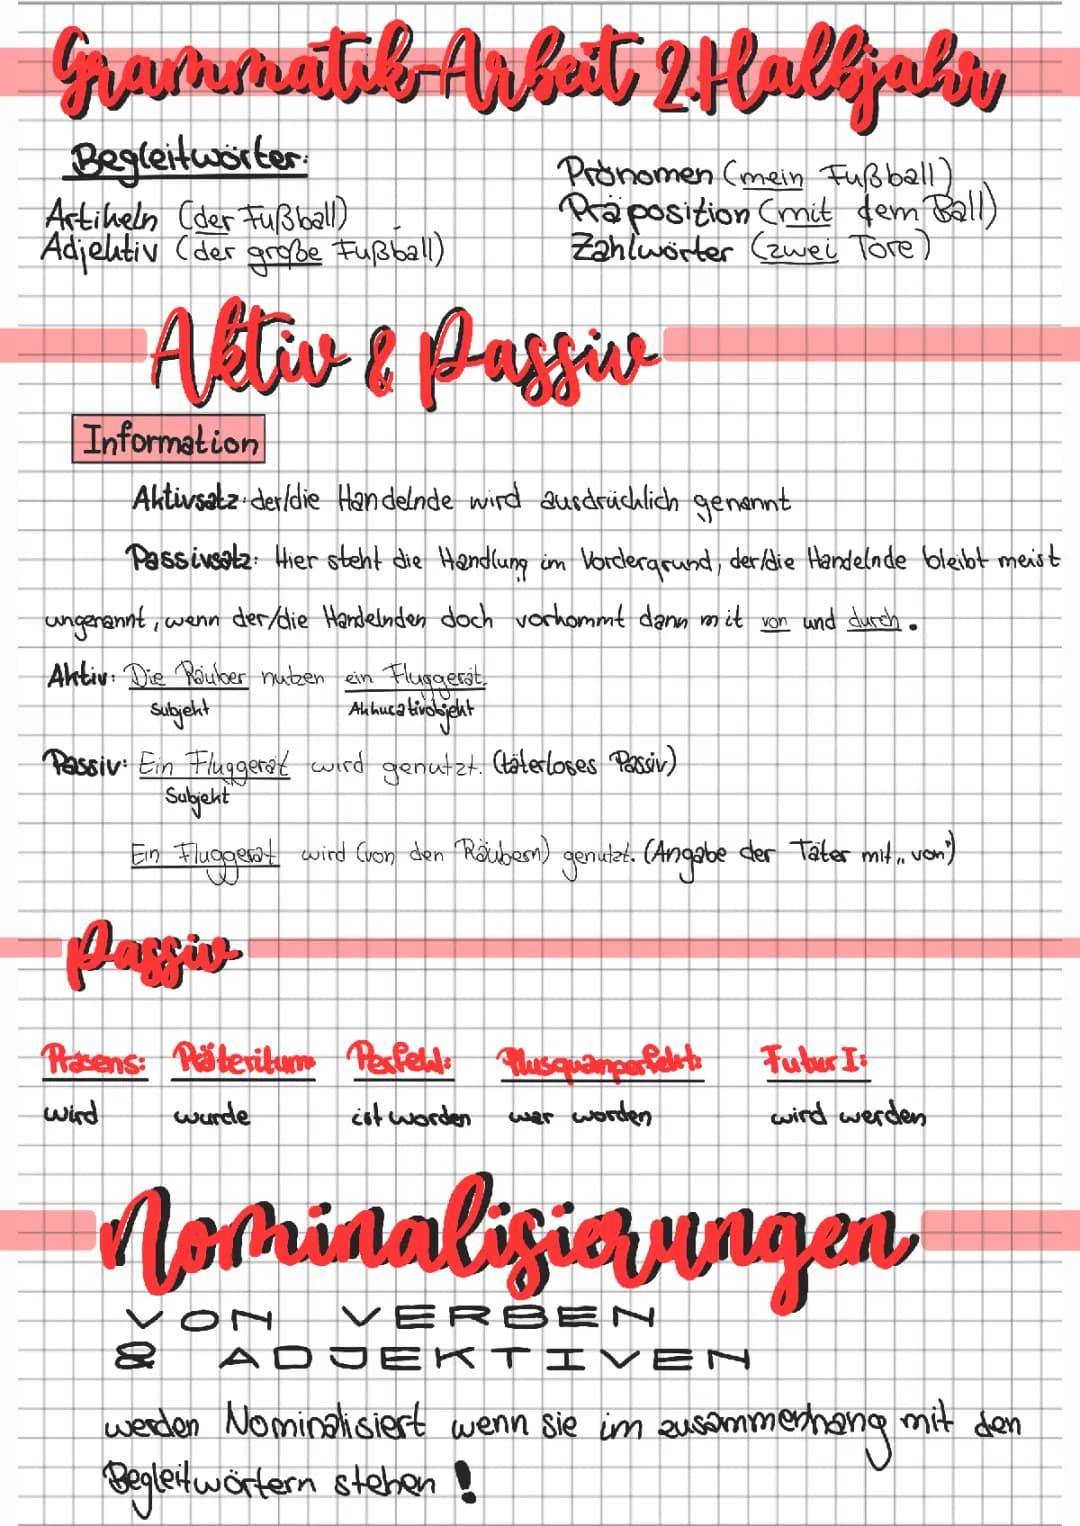 Grammatik-Arbeit 2.Halbjahr
Begleitwörter:
Artikeln (der Fußball)
Adjektiv (der große Fußball)
Pronomen (mein Fußball)
Präposition (mit dem Ball)
Zahlwörter (zwei Tore)
Aktiv & Passiv
Information
Aktivsatz: der/die Handelnde wird ausdrücklich genannt
Passivsatz: Hier steht die Handlung im Vordergrund, der/die Handelnde bleibt meist
ungenannt, wenn der/die Handelnden doch vorkommt dann mit von und durch.
Aktiv: Die Räuber nutzen ein Fluggerät.
Subjekt Akkucativobjekt
Passiv: Ein Fluggerät wird genutzt. (täterloses Passiv)
Subjekt
Ein Fluggerät wird (von den Räubern) genutzt. (Angabe der Täter mit „von")
Passiv
Präsens: Präteritum Perfekt: Plusquamperfekt: Futur I:
wird wurde ist worden war worden wird werden
Nominalisierungen
VON VERBEN
& ADJEKTIVEN
werden Nominalisiert wenn sie im zusammenhang mit den
Begleitwörtern stehen!